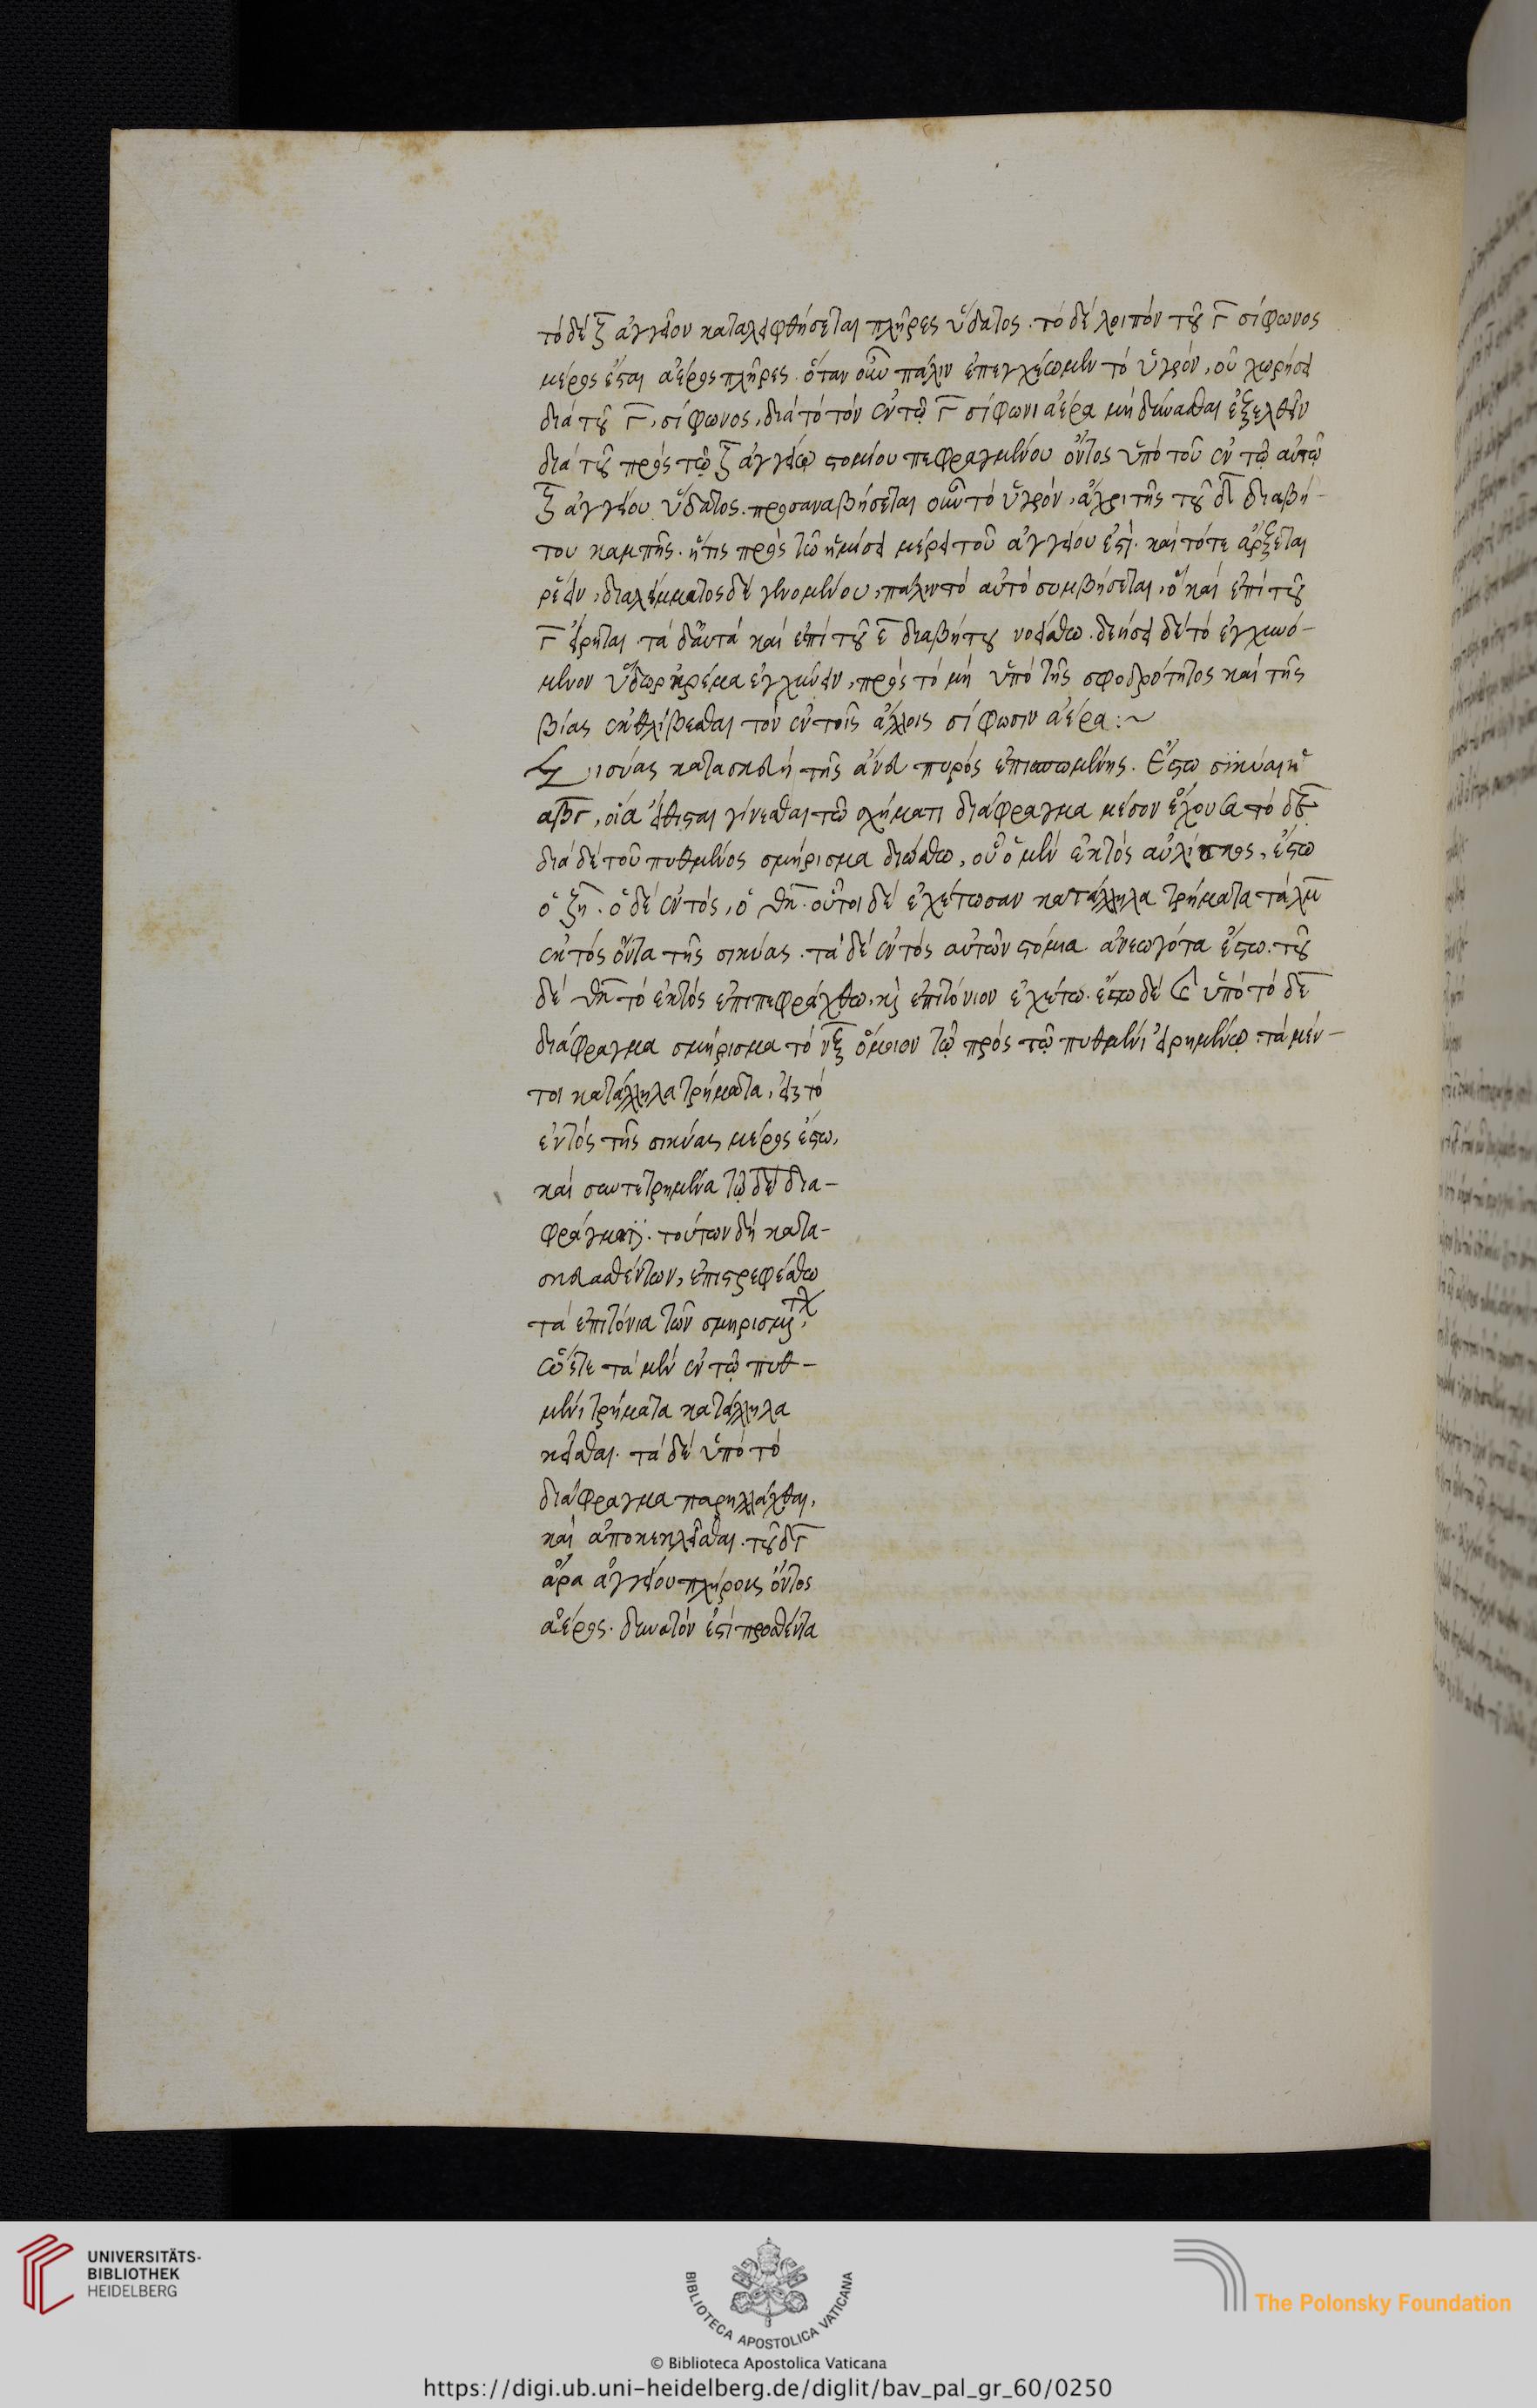 τὸ δὲ ξ ἀγγεῖον καταλειφθήσεται πλῆρες ὕδατος. τὸ δὲ λοιπὸν τοῦ γ σίφωνος
μέρος ἔσται ἀέρος πλῆρες. ὅταν οὖν πάλιν ἐπεγχέωμεν τὸ ὑγρὸν, οὐ χωρήσει
διὰ τοῦ γ, σίφωνος, διὰ τὸ τὸν ἐν τῷ γ σίφωνι ἀέρα μὴ δύνασθαι ἐξελθεῖν
διὰ τοῦ πρὸς τῷ ξ ἀγγείῳ στομίου πεφραγμένου ὄντος ὑπὸ τοῦ ἐν τῷ αὐτῷ
ξ ἀγγείου ὕδατος. προσαναβήσεται οὖν τὸ ὑγρὸν, ἄχρι τῆς τοῦ δ διαβή-
του καμπῆς. ἥτις πρὸς τῷ ἡμίσει μέρει τοῦ ἀγγείου ἐστί. καὶ τότε ἄρξεται
ῥέειν, διαλείμματος δὲ γενομένου, πάλιν τὸ αὐτὸ συμβήσεται, ὃ καὶ ἐπὶ τοῦ
γ εἴρηται τὰ δ' αὐτὰ καὶ ἐπὶ τοῦ ε διαβήτου νοείσθω. δεήσει δὲ τὸ ἐγχυνό-
μενον ὕδωρ ἠρέμα ἐγχύνειν, πρὸς τὸ μὴ ὑπὸ τῆς σφοδρότητος καὶ τῆς
βίας ἐκθλίβεσθαι τὸν ἐν τοῖς ἄλλοις σίφωσιν ἀέρα:~
ισύας κατασκευὴ τῆς ἄνευ πυρὸς ἐπισπωμένης. Ἔστω σικύα ἡ
αβγ, οἵα εἴθισται γίνεσθαι τῷ σχήματι διάφραγμα μέσον ἔχουσα τὸ δε
διὰ δὲ τοῦ πυθμένος σμήρισμα διώσθω, οὗ ὁ μὲν ἐκτὸς αὐλίσκος, ἔστω
ὁ ζη. ὁ δὲ ἐντὸς, ὁ θκ. οὗτοι δὲ ἐχέτωσαν κατάλληλα τρήματα τὰ λμ
ἐκτὸς ὄντα τῆς σικύας. τὰ δὲ ἐντὸς αὐτῶν στόμια ἀνεωγότα ἔστω. τοῦ
δὲ θκ τὸ ἐκτὸς ἐπιπεφράχθω, καὶ ἐπιτόνιον ἐχέτω. ἔστω δὲ καὶ ὑπὸ τὸ δε
διάφραγμα σμήρισμα τὸ νξ ὅμοιον τῷ πρὸς τῷ πυθμένι εἰρημένῳ. τὰ μέν-
τοι κατάλληλα τρήματα, εἰς τὸ
ἐντὸς τῆς σικύας μέρος ἔστω,
καὶ συντετρημένα τῷ δε δια-
φράγματι. τούτων δὴ κατα-
σκευασθέντων, ἐπιστρεφέσθω
τὰ ἐπιτόνια τῶν σμηρισμάτων,
ὥστε τὰ μὲν ἐν τῷ πυθ-
μένι τρήματα κατάλληλα
κεῖσθαι. τὰ δὲ ὑπὸ τὸ
διάφραγμα παρηλλάχθαι,
καὶ ἀποκεκλεῖσθαι. τοῦ δγ
ἄρα ἀγγείου πλήρους ὄντος
ἀέρος. δυνατόν ἐστὶ προσθέντα
UNIVERSITÄTS-
BIBLIOTHEK
HEIDELBERG
BIBLIOTECA APOSTOLICA VATICANA
The Polonsky Foundation
© Biblioteca Apostolica Vaticana
https://digi.ub.uni-heidelberg.de/diglit/bav_pal_gr_60/0250